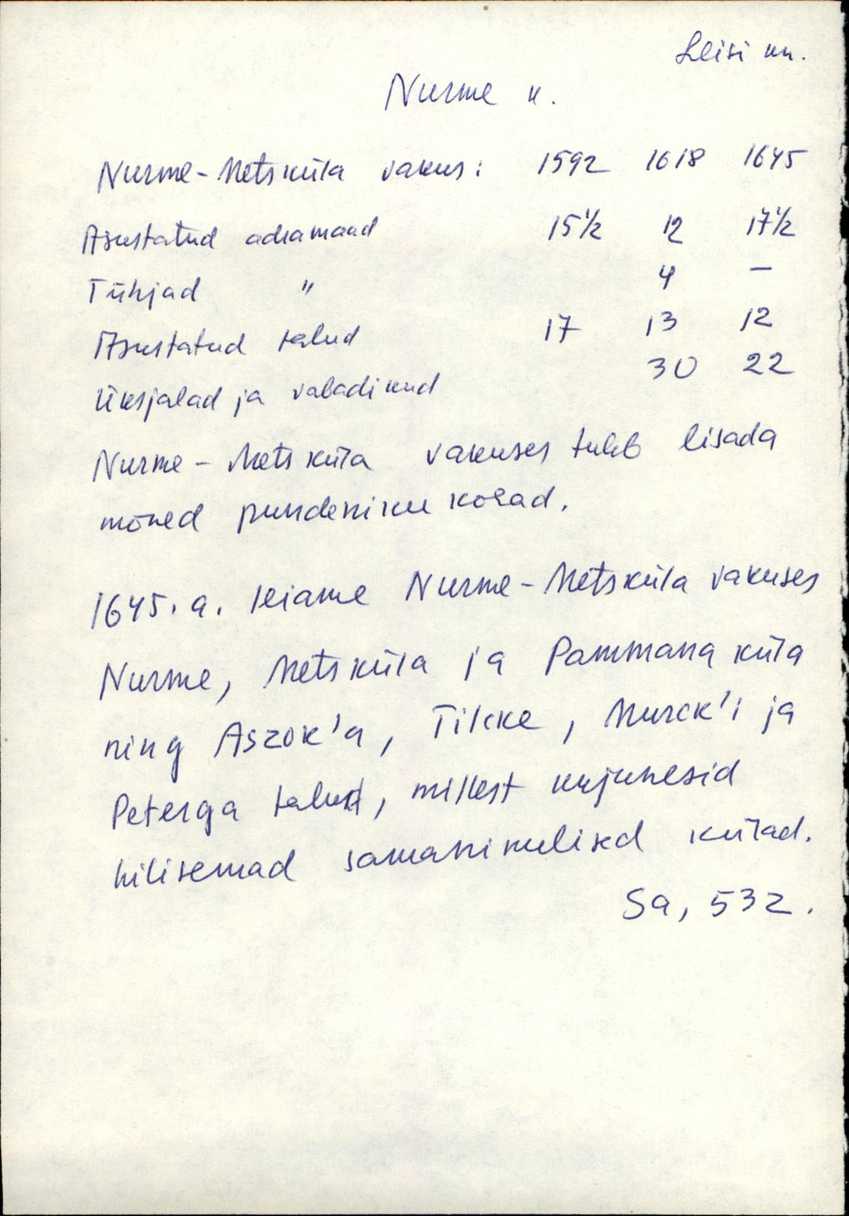 Leisi kn.
Nurme k.
Nurme-Metsküla vakus: 1592 1618 1645
Asustatud adramaad 15½ 12 17½
Tühjad " 4 -
Asustatud talud 17 13 12
Üksjalad ja vabadikud 30 22
Nurme - Metsküla vakuses tuleb lisada
mõned pundeniku kohad.
1645. a. leiame Nurme-Metsküla vakuses
Nurme, Metsküla ja Pammana küla
ning Aszok'a, Tikke, Murck'i ja
Peterga talud, millest kujunesid
hilisemad samanimelised külad.
Sa, 532.